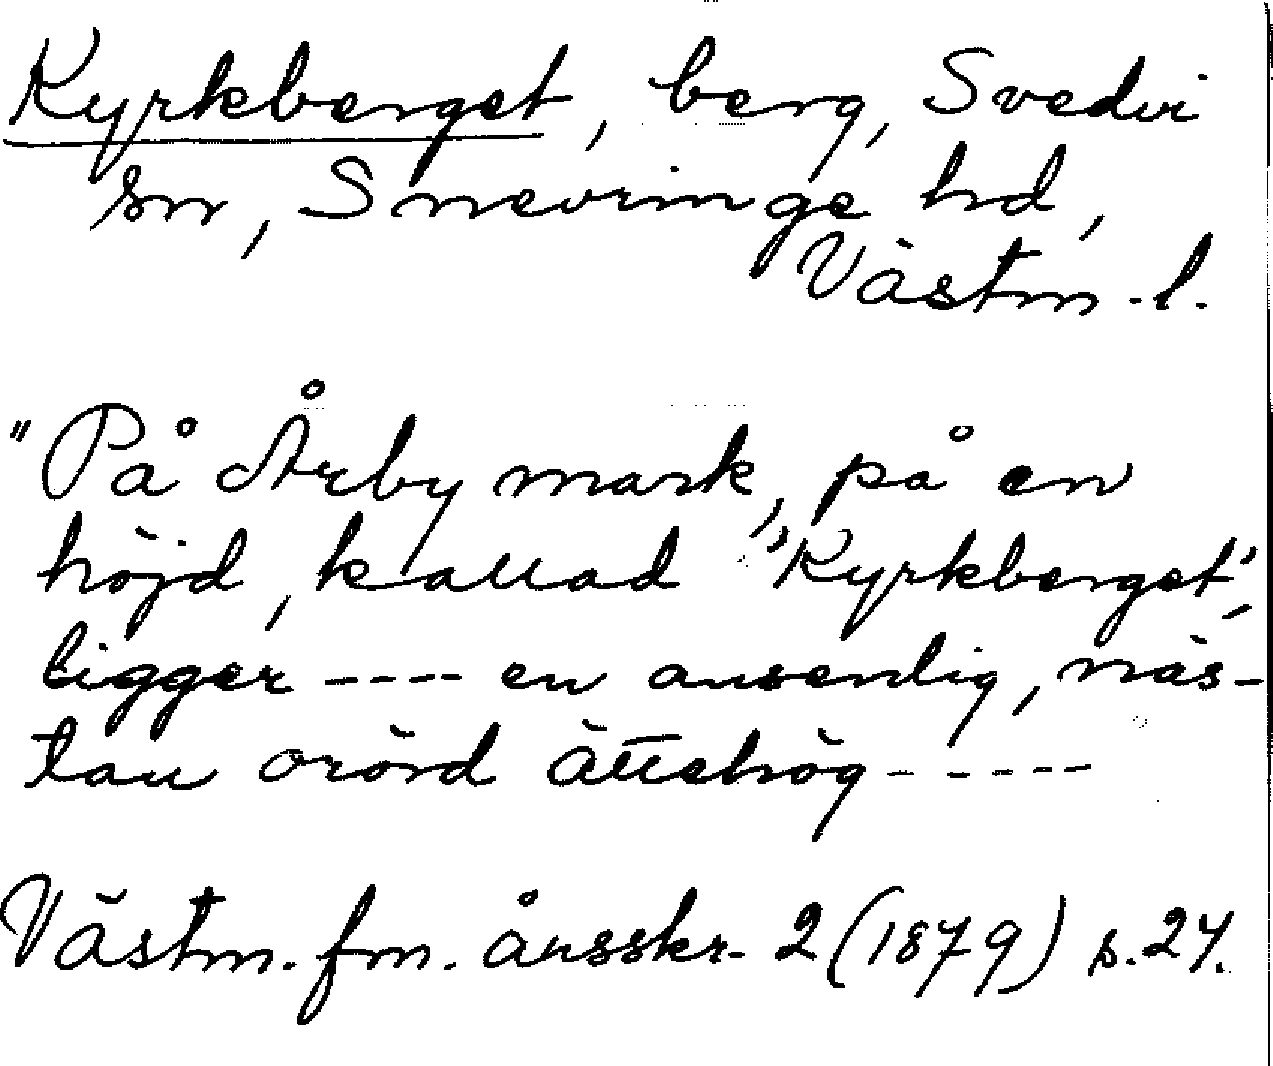 Kyrkberget, berg, Svedvi
sn, Snevringe hd,
Västm.l.
"På Årby mark, på en
höjd, kallad 'Kyrkberget',
ligger ---- en ansenlig, näs-
tan orörd ättehög - ----
Västm. fm. årsskr. 2 (1879) s. 24.